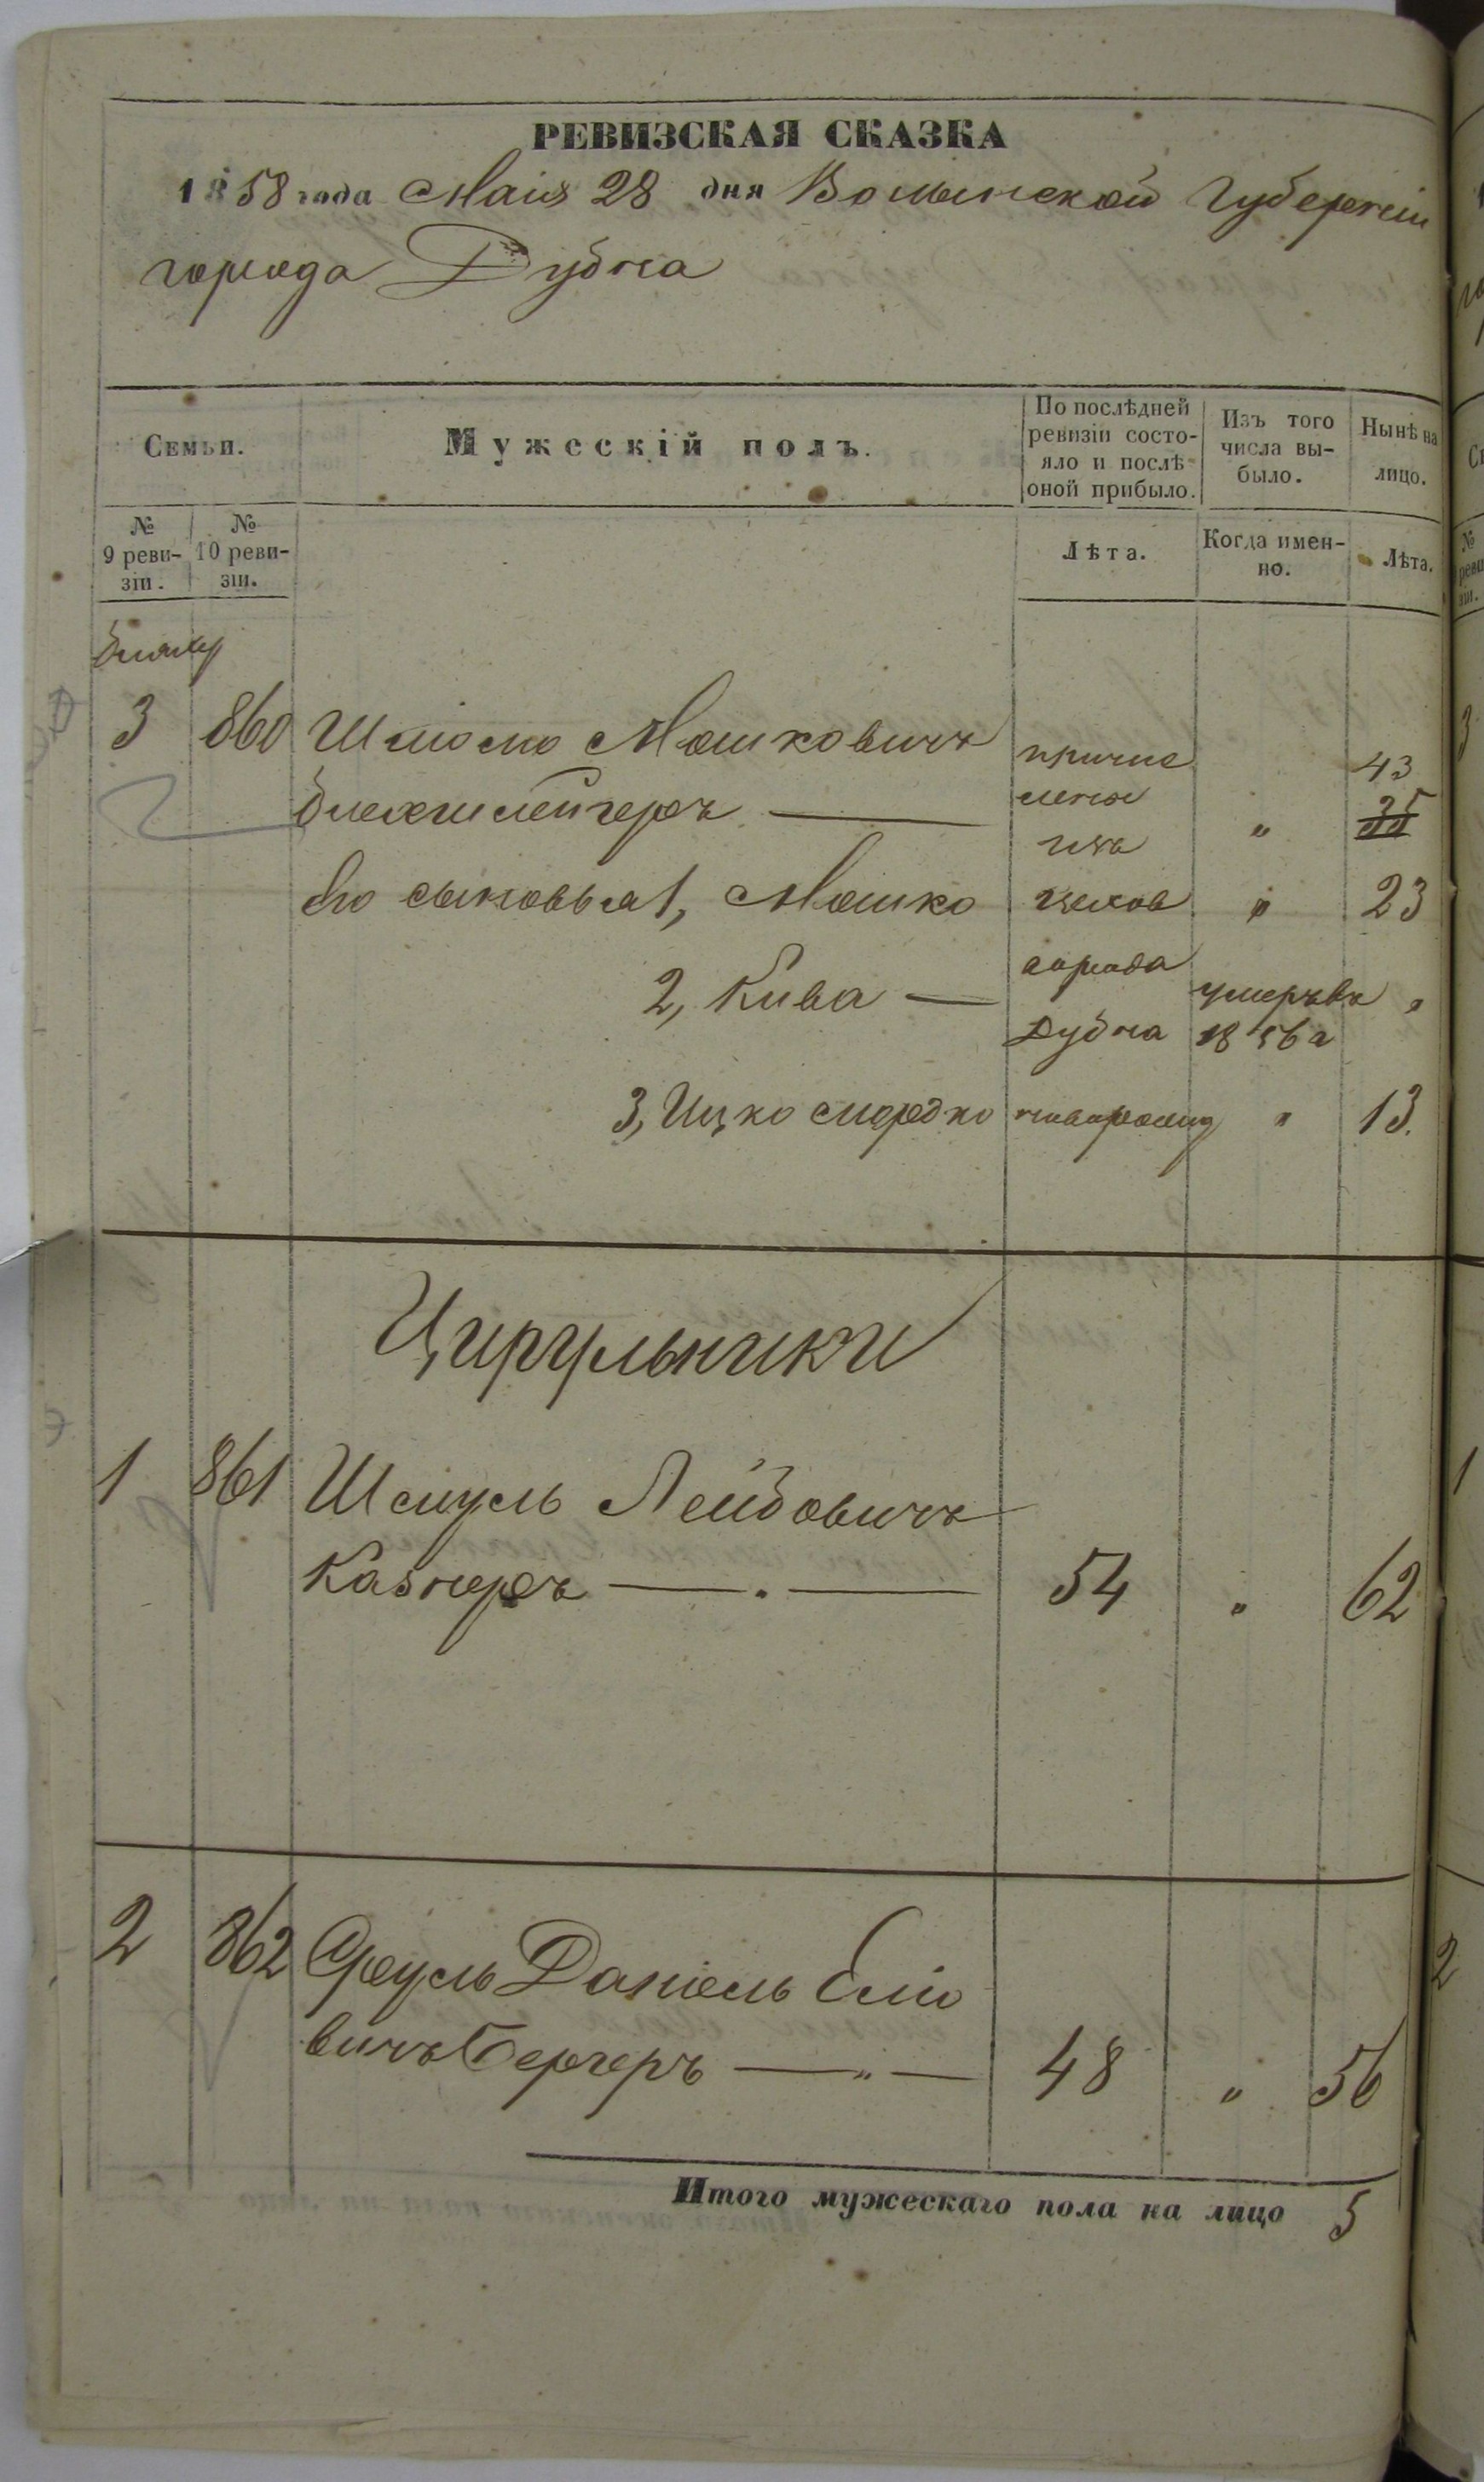 РЕВИЗСКАЯ СКАЗКА
1858 года Маія 28 дня Волынской Губерніи
города Дубна
Семьи.
Мужескій полъ.
По послѣдней ревизіи состо-
яло и послѣ
оной прибыло.
Изъ того
числа вы-
было.
Нынѣ на
лицо.
№
9 реви-
зіи.
№
10 реви-
зіи.
Лѣта.
Когда имен-
но.
Лѣта.
3 860 Шліомо Мошковичъ
причис
43
Блехшлейгеръ —
лены
изъ
" 35
Его сыновья 1, Мошко
цехов
" 23
2, Кива —
города
Дубна
умеръ въ
1856 г
"
3, Ицко Мордко
" 13.
Цирульники
1 861 Шмуль Лейбовичъ
Казнеръ — . — 54 " 62
2 862 Сруль Даніель Еліо
вичъ Бергеръ — " — 48 " 56
Итого мужескаго пола на лицо 5